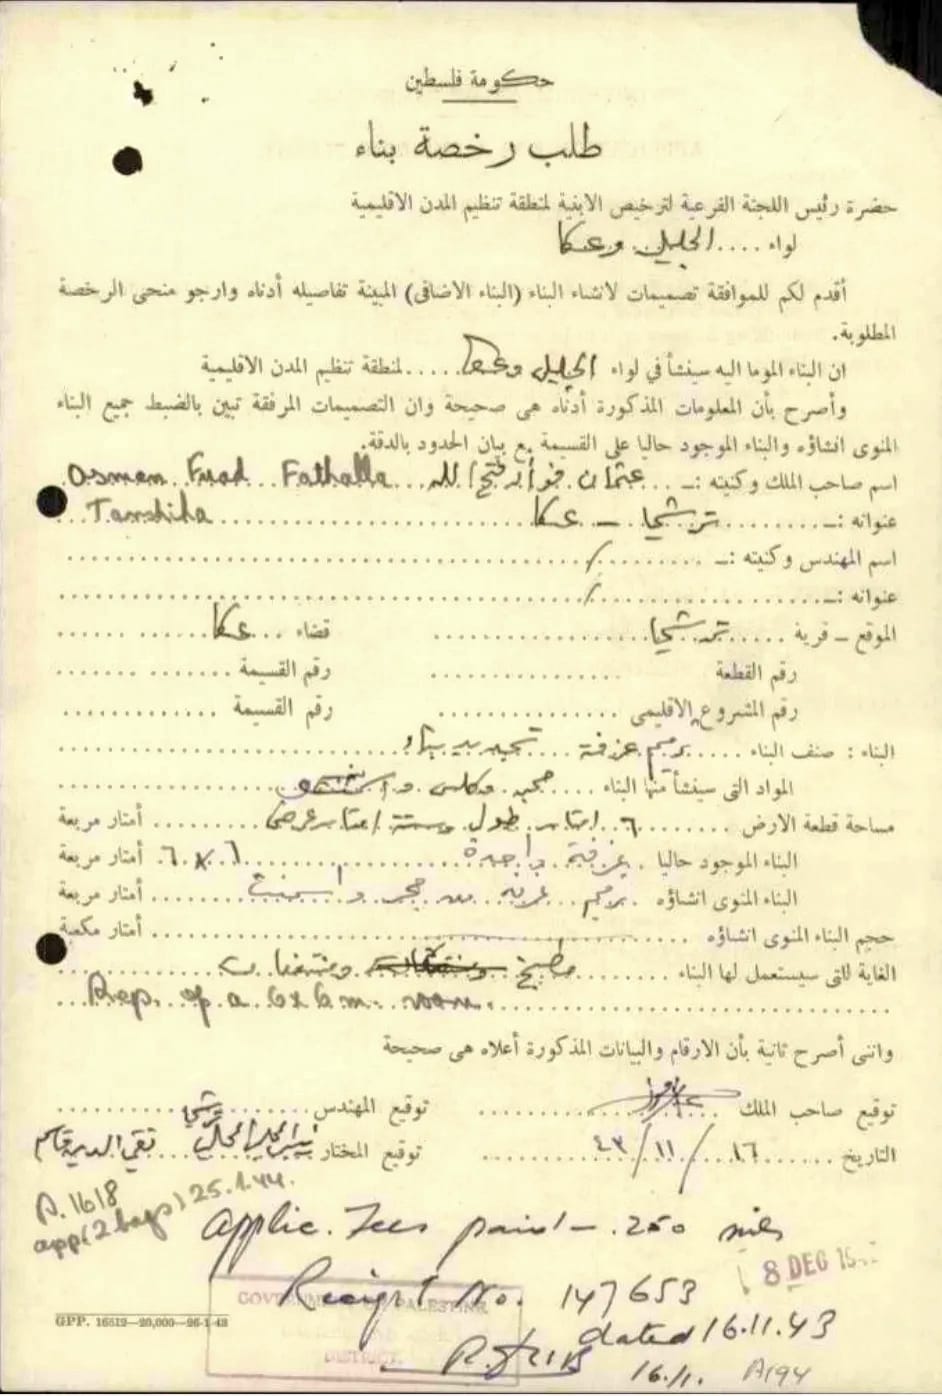 حكومة فلسطين
طلب رخصة بناء
حضرة رئيس اللجنة الفرعية لترخيص الابنية لمنطقة تنظيم المدن الاقليمية
لواء .... الجليل وعكا
أقدم لكم للموافقة تصميمات لانشاء البناء (البناء الاضافى) المبينة تفاصيله أدناه وارجو منحى الرخصة
المطلوبة.
ان البناء الموما اليه سينشأ في لواء الجليل وعكا ..... لمنطقة تنظيم المدن الاقليمية
وأصرح بأن المعلومات المذكورة أدناه هى صحيحة وان التصميمات المرفقة تبين بالضبط جميع البناء
المنوى انشاؤه والبناء الموجود حاليا على القسيمة مع بيان الحدود بالدقة.
اسم صاحب الملك وكنيته :ـ ... عثمان فؤاد فتح الله ... Osman Fuad Fathalla
عنوانه :ـ ........ ترشيحا ـ عكا ........ Tarshiha
اسم المهندس وكنيته :ـ ........ / ........
عنوانه :ـ ........ / ........
الموقع ـ قرية ..... ترشيحا ........ قضاء ... عكا ......
رقم القطعة ........ رقم القسيمة ........
رقم المشروع الاقليمى ........ رقم القسيمة ........
البناء : صنف البناء .... ترميم غرفة ... تجديد بناء ........
المواد التى سينشأ منها البناء .... حجر وكلس و
مساحة قطعة الارض ........ ٦ امتار طول وستة امتار عرض ..... أمتار مربعة
البناء الموجود حاليا .. غرفة واحدة ........ ٦ × ٦ . أمتار مربعة
البناء المنوى انشاؤه . ترميم غرفه من حجر واسمنت ........ أمتار مربعة
حجم البناء المنوى انشاؤه ........ أمتار مكعبة
الغاية للتى سيستعمل لها البناء ........ مطبخ ومنتفعات ........
Rep. of a 6x6 m. room.
واننى أصرح ثانية بأن الارقام والبيانات المذكورة أعلاه هى صحيحة
توقيع صاحب الملك ........ توقيع المهندس ........
التاريخ ...... ١٦ / ١١ / ٤٣ ........ توقيع المختار
A.1618
app(2 bags) 25.1.44.
Applic. Fees paid – .250 mils
8 DEG 19
Receipt No. 147653
GOVERNMENT PALESTINE
dated 16.11.43
DISTRICT
GPP. 16512—20,000—26-1-43
16.11. A194